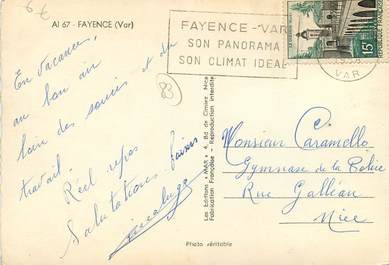 6 €
Al 67 - FAYENCE (Var)
FAYENCE - VAR
SON PANORAMA
SON CLIMAT IDEAL
15F
VAR
83
En vacances,
au bon air
loin des soucis et du
travail.
Réel repos
Salutations
Monsieur Caramello
Gymnase de la Police
Rue Galléan
Nice
Les Editions "MAR" 4, Rd de Cimiez Nice
Fabrication Française - Reproduction interdite
Photo véritable